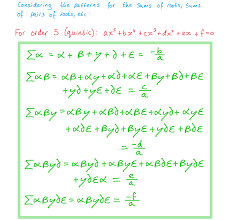 Considering the patterns for the sums of roots, sums
of pairs of roots, etc
For order 5 (quintic): ax⁵+bx⁴+cx³+dx²+ex+f=0
Σα = α+β+γ+δ+ε = -b/a
Σαβ = αβ+αγ+αδ+αε+βγ+βδ+βε
+γδ+γε+δε = c/a
Σαβγ = αβγ+αβδ+αβε+αγδ+αγε
+αδε+βγδ+βγε+γδε+βδε
= -d/a
Σαβγδ = αβγδ+αβγε+αβδε+βγδε
+γδεα = e/a
Σαβγδε = αβγδε = -f/a